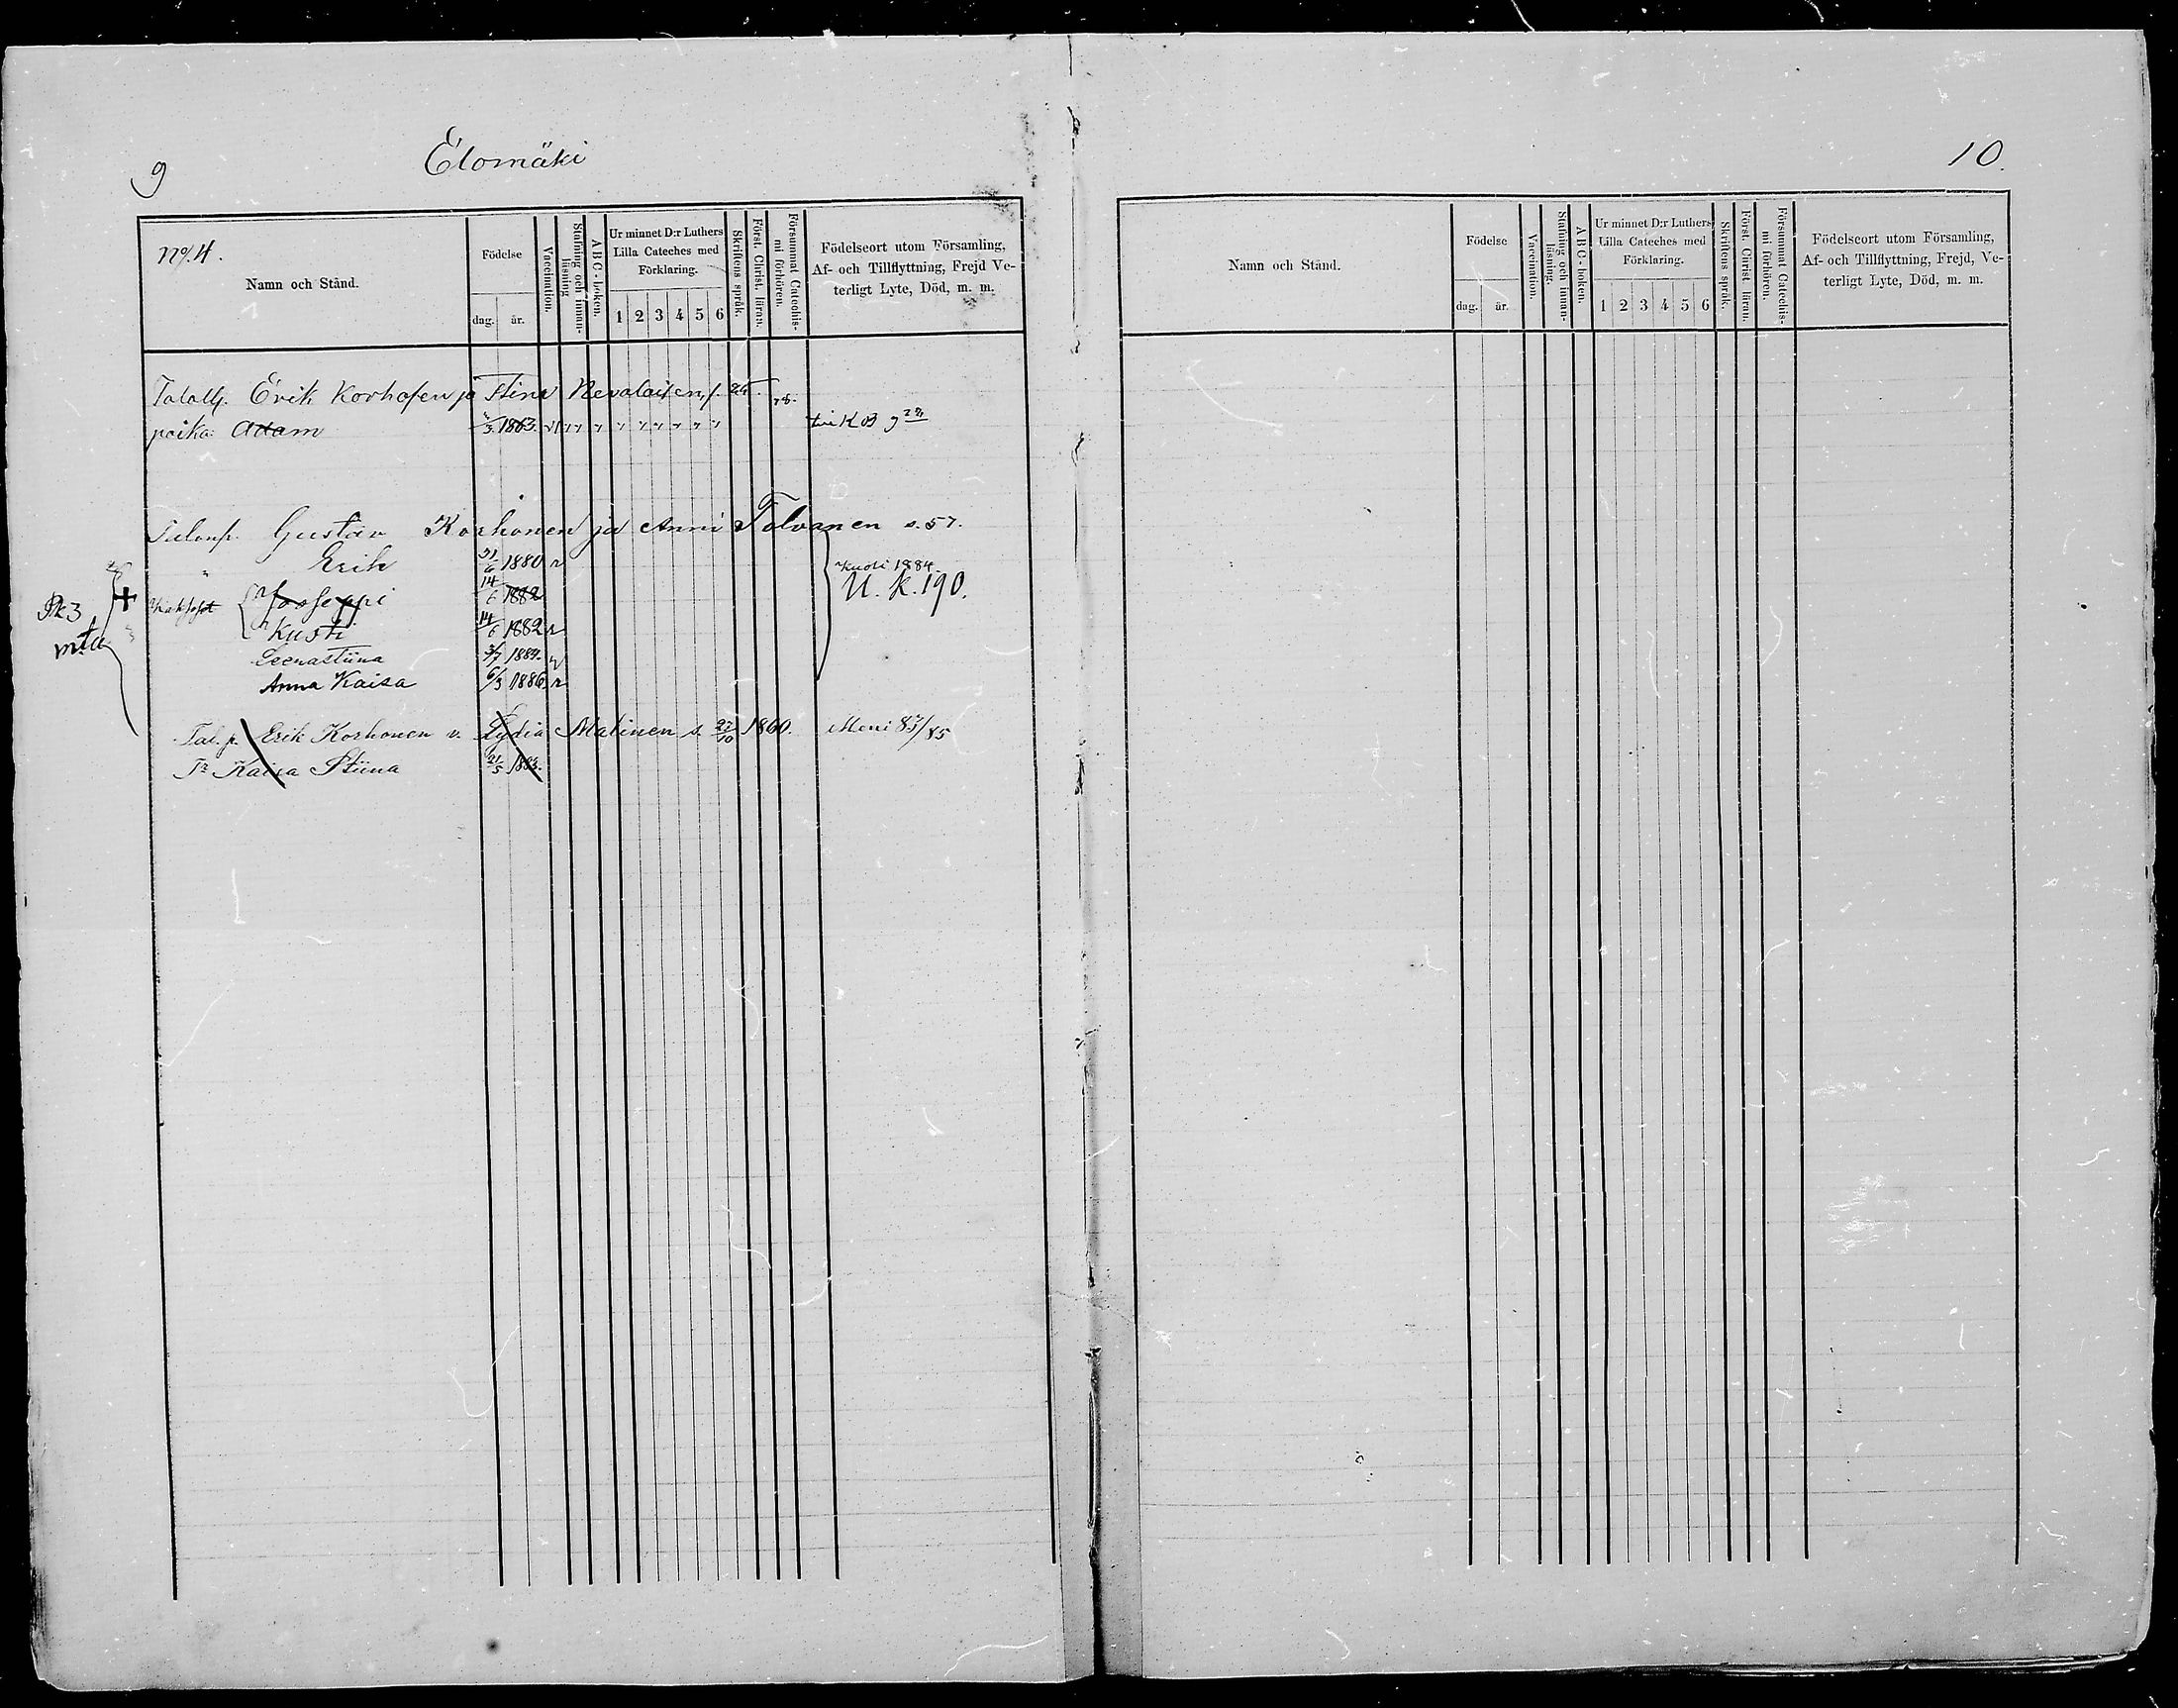 9
Elomäki
No. 4.
Namn och Stånd.
Födelse
dag. år.
Vaccination.
Stafning och innanläsning
A B C-boken.
Ur minnet D:r Luthers
Lilla Cateches med
Förklaring.
1 2 3 4 5 6
Skriftens språk.
Först. Christ. läran.
Försummat Catechismi förhören.
Födelseort utom Församling,
Af- och Tillflyttning, Frejd Ve-
terligt Lyte, Död, m. m.
Erik Korhosen ja Stina Nevalaisen, f.
poika: Adam 1863.
Talonp. Gustav Korhonen ja Anni Tolvanen s. 57.
Erik 1880 r
kuoli 1884
U. k. 190.
Rk3
Jooseppi 14/6 1882
Kusti 14/6 1882 r
Leenastiina 3/7 1884.
Anna Kaisa 6/3 1886 r
Tal. p. Erik Korhonen v. Lydia Matinen s. 27/10 1860. Meni
Tr Kaisa Stiina 21/5 1883.
10.
Namn och Stånd.
Födelse
dag. år.
Vaccination.
Stafning och innanläsning.
A B C-boken.
Ur minnet D:r Luthers
Lilla Cateches med
Förklaring.
1 2 3 4 5 6
Skriftens språk.
Först. Christ. läran.
Försummat Catechismi förhören.
Födelseort utom Församling,
Af- och Tillflyttning, Frejd, Ve-
terligt Lyte, Död, m. m.